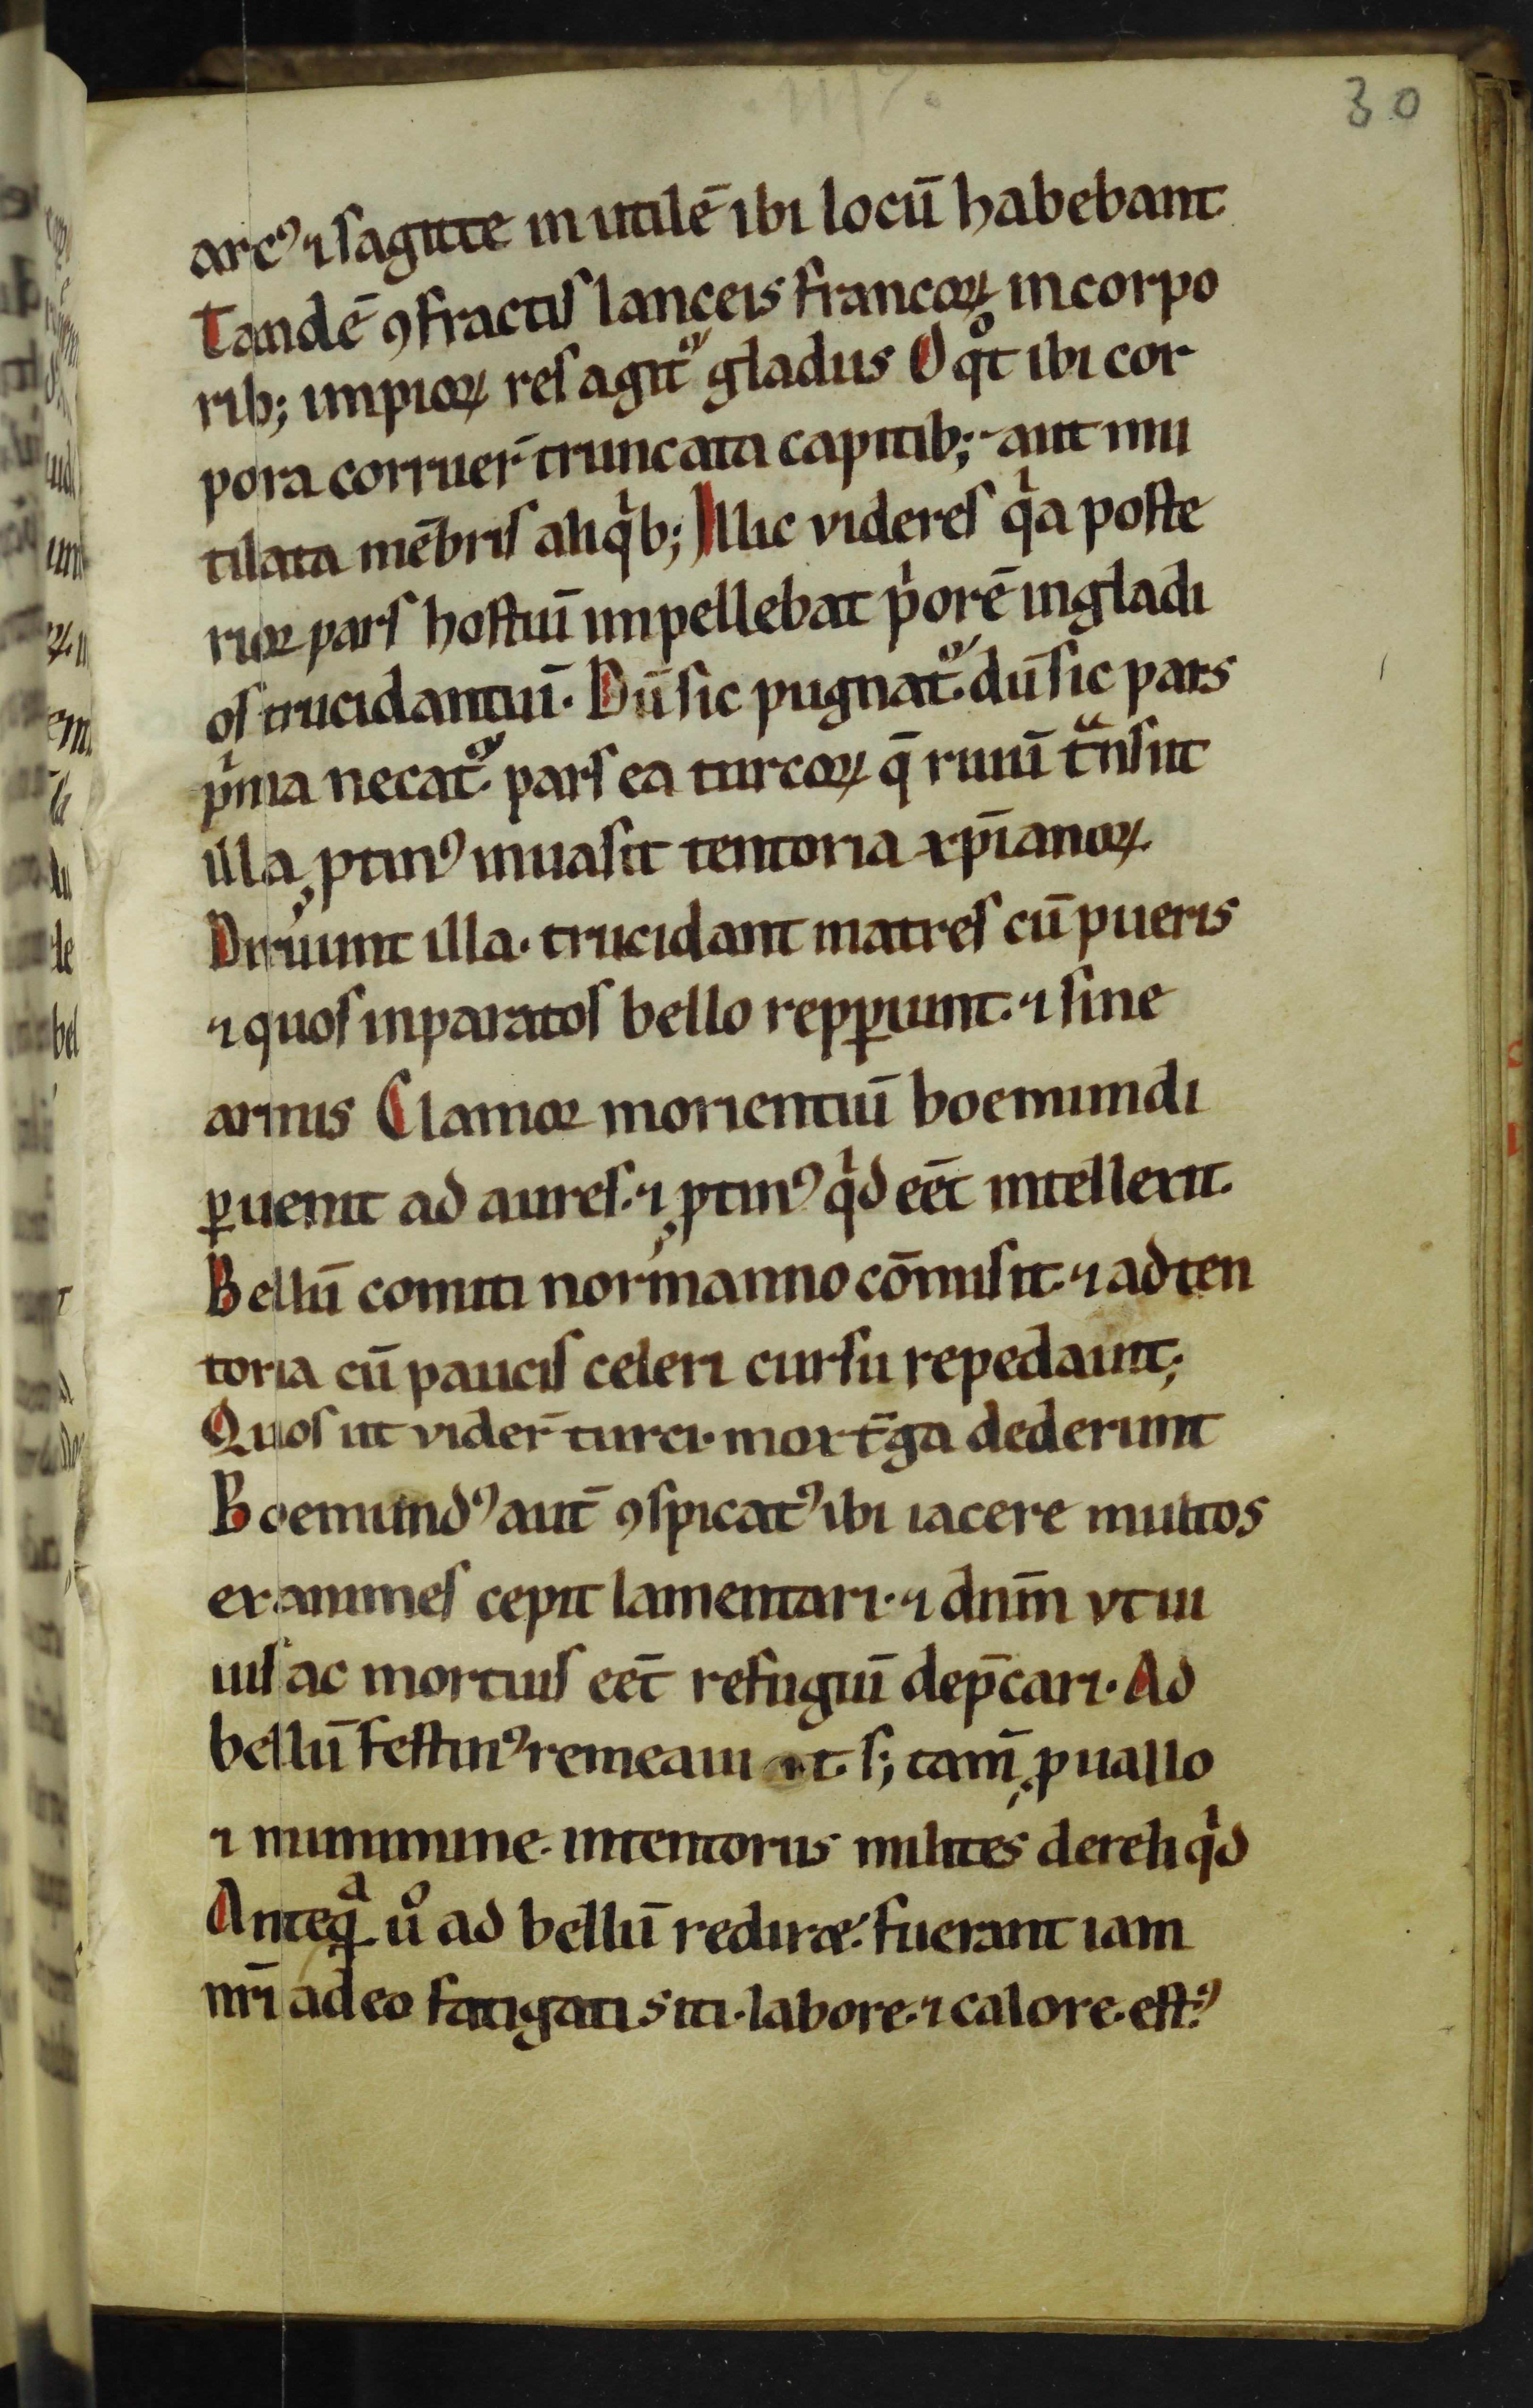 30
arcꝰ ⁊ sagitte inutilē ibi locū habebant
Tandē ꝯfractis lanceis francoꝝ in corpo
rib; impioꝝ res agit᷑ gladiis O qͦt ibi cor
pora corruer̄ truncata capitib; aut mu
tilata mēbris aliqͥb; Illic videres qͥa poste
rior pars hostiū impellebat pͥorē in gladi
os trucidantiū. Dū sic pugnat᷑. dū sic pars
pͥma necat᷑. pars ea turcoꝝ q̄ riuū tͣnsiit
illa, ꝓtinꝰ inuasit tentoria xp̄ianoꝝ.
Diruunt illa. trucidant matres cū pueris
⁊ quos inparatos bello repꝑiunt. ⁊ sine
armis Clamor morientiū boemundi
ꝑuenit ad aures. ⁊ ꝓtinꝰ qͥd eēt intellexit.
Bellū comiti normanno cōmisit. ⁊ ad ten
toria cū paucis celeri cursu repedauit;
Quos ut vider̄ turci. mox t̄ga dederunt
Boemundꝰ aut̄ ꝯspicatꝰ ibi iacere multos
exanimes cepit lamentari. ⁊ dn̄m vt ui
uis ac mortuis eēt refugiū dep̄cari. Ad
bellū festinꝰ remeauit. s; tam̄ ꝓ uallo
⁊ munimine. in tentoriis milites dereliqͥd
Anteqͣ uͦ ad bellū redirꝫ. fuerant iam
nr̄i adeo fatigati siti. labore. ⁊ calore. estꝰ